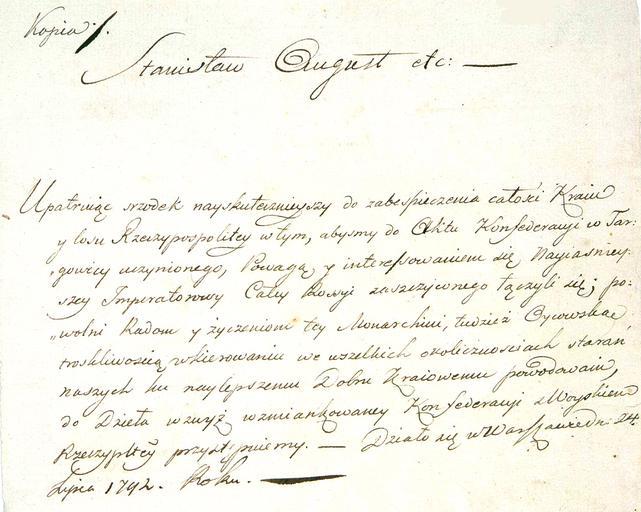 Kopia /.
Stanisław August etc: —
Upatruiąc srzodek nayskutecznieyszy do zabespieczenia całości Kraiu
y losu Rzeczypospolitey w tym, abyśmy do Aktu Konfederacyi w Tar:
„gowicy uczynionego, Powagą y interessowaniem się Nayiaśniey:
szey Imperatorowy Całey Rossyi zaszczyconego łączyli się; po:
„wolni Radom y życzeniom tey Monarchini, tudzież Oycowską
troskliwością w kierowaniu we wszelkich okolicznościach starań
naszych ku naylepszemu Dobru Kraiowemu powodowani,
do Dzieła wzwyż wzmiankowaney Konfederacyi z Woyskiem
Rzeczypltey przystępuiemy. — Działo się w Warszawie dn: 24.
Lipca 1792. Roku. —